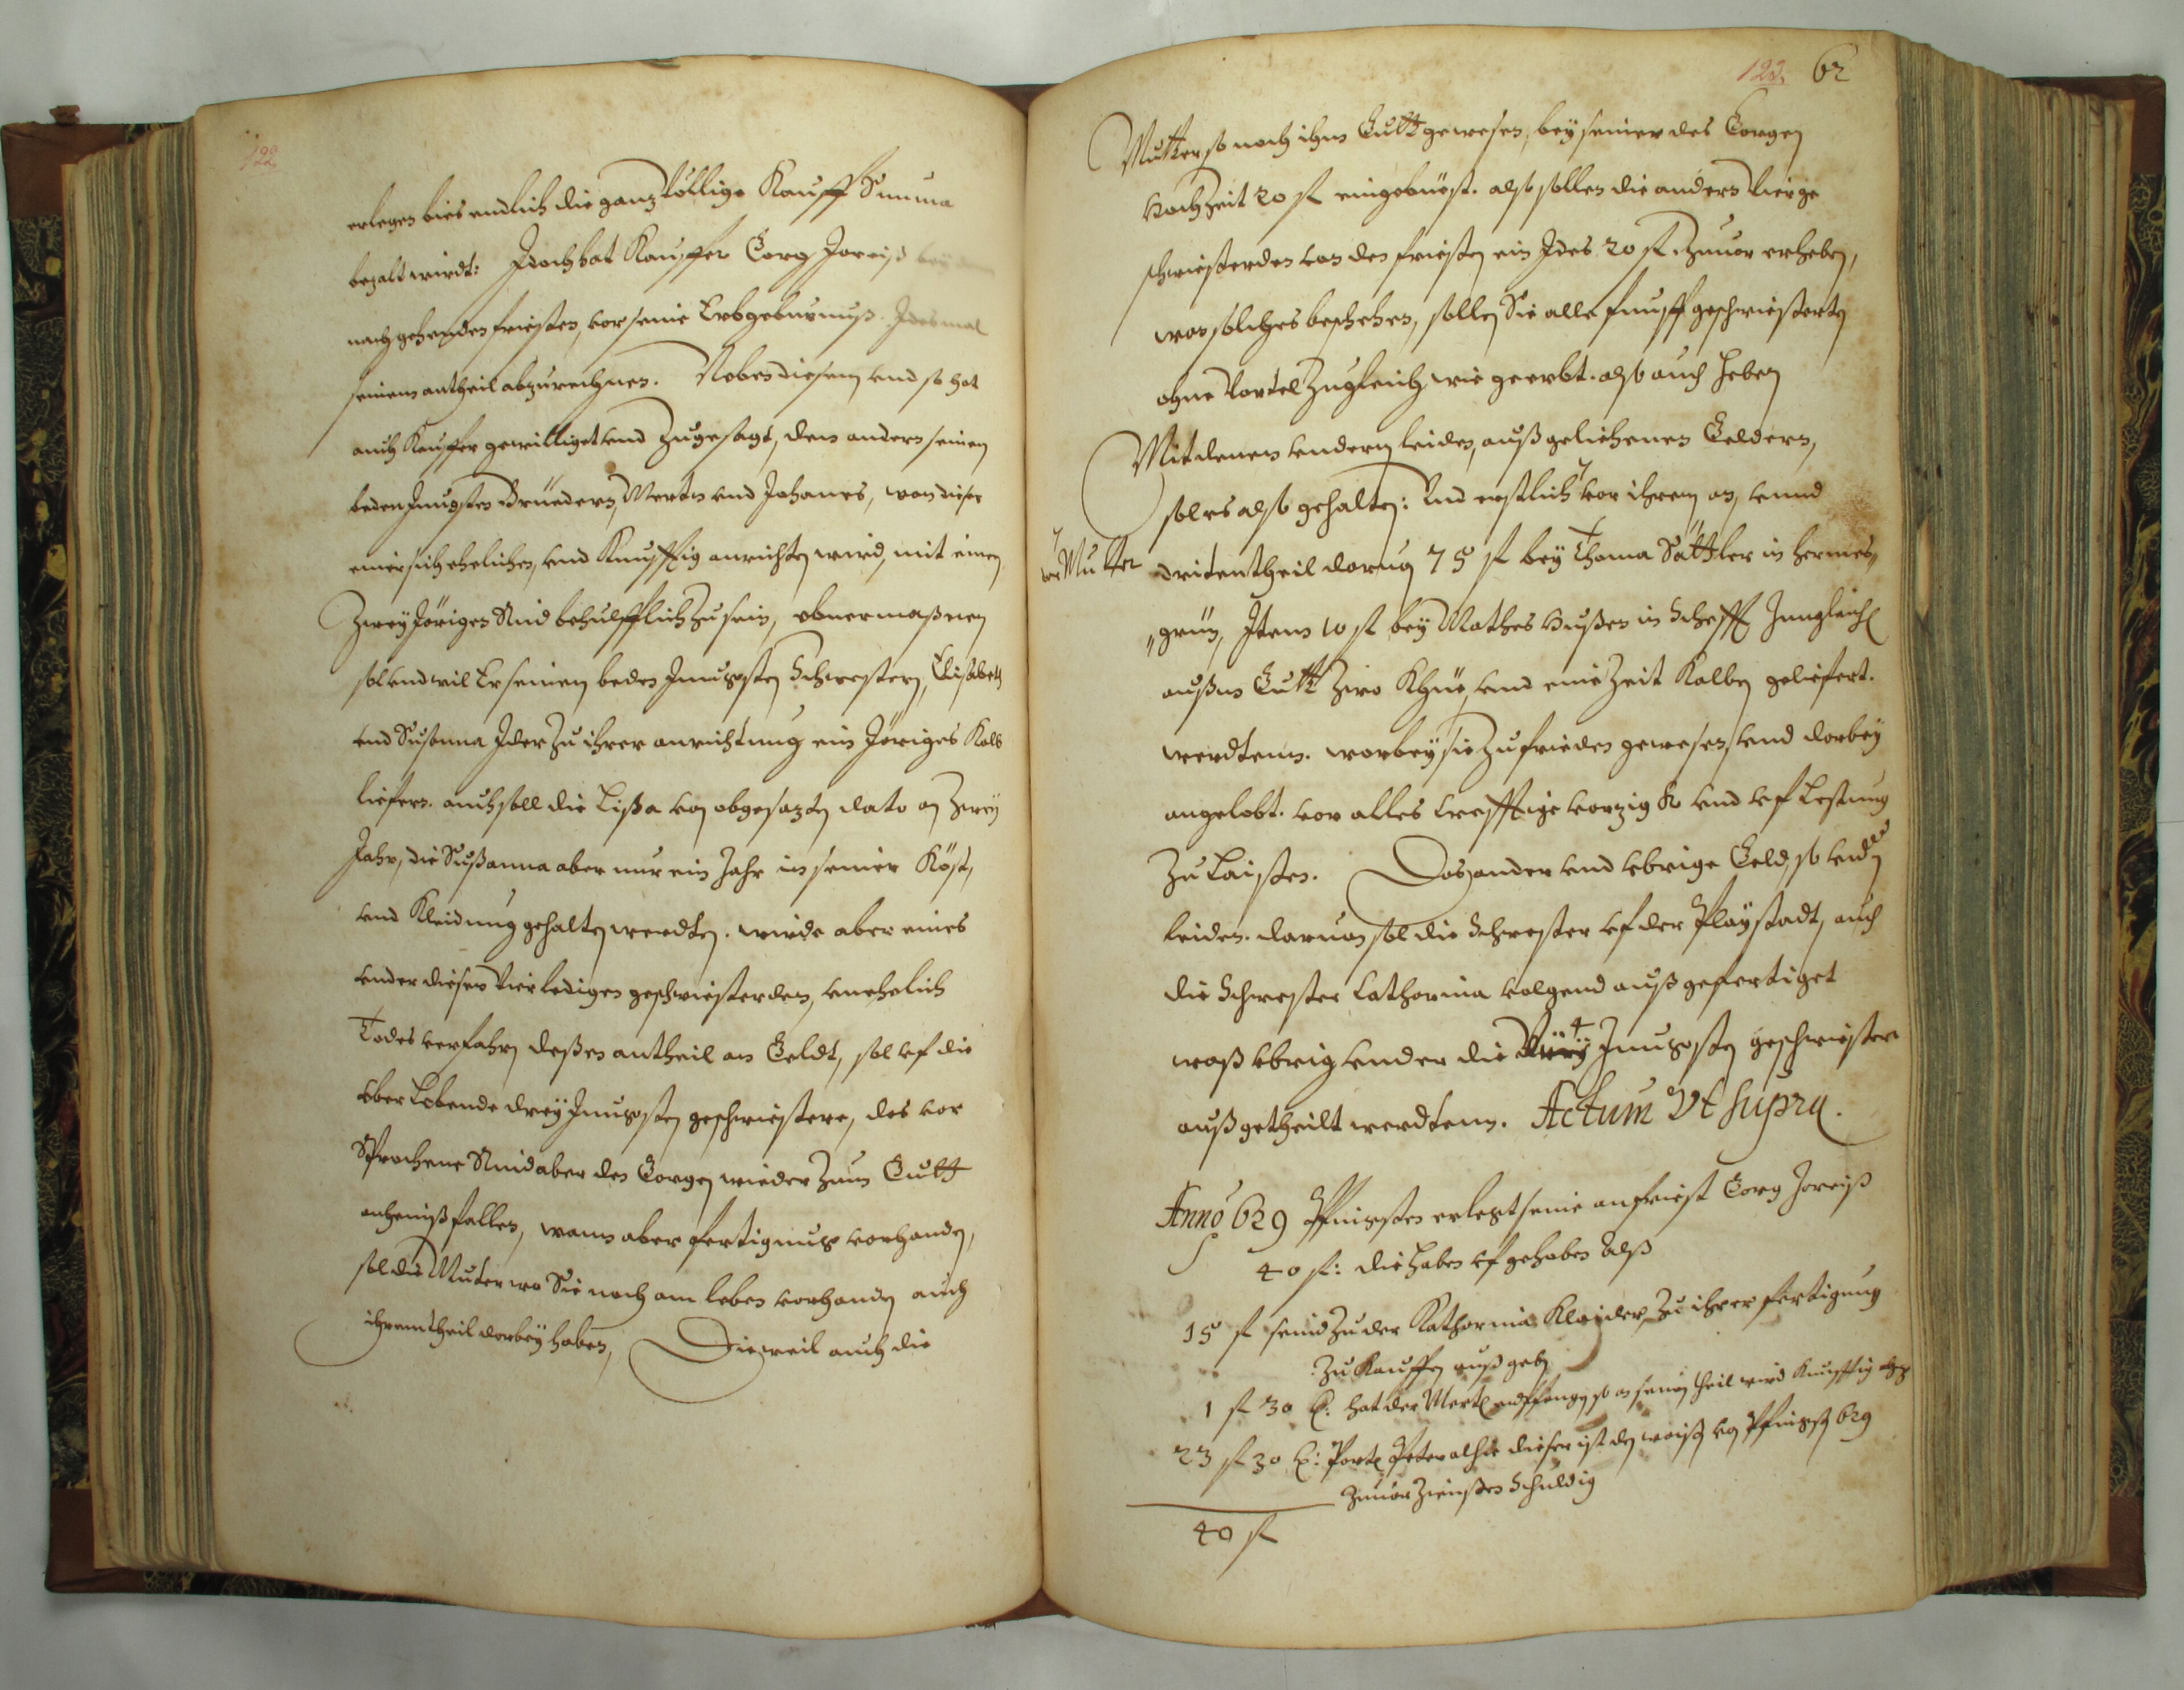 122
erlegen bies endlich die ganz völlige Kauff Summa
bezalt wirdt: Idoch hat Kauffer Georg Joreiß bey
nachgehenden friesten, vor seine Erbgebürnuß. Idesmal
seinem antheil abzurechnen. Neben diesem vnd so hat
auch Kauffer gewilliget vnd zugesagt, den andern seinen
beden Jungsten Brüedern, Merten vnd Johanes, wan dieser
einer sich ehelichen, vnd Künfftig anrichten wird, mit einen
Zweyjörigen Rind behülfflich zu sein, ebnermaßnen
sol vnd wil Er seinen beden Jungsten Schwestern, Elisabeth
vnd Susanna Ider zu ihrer anrichtung ein Jöriges Kalb
liefern. auch soll die Lissa von obgesazten dato an zwey
Jahr, die Sussanna aber nur ein Jahr in seiner Köst,
vnd Kleidung gehalten werdten. wirde aber eines
vnder diesen vier ledigen geschwiesterden, vnehelich
Todes verfahren deßen antheil an Geldt, sol vf die
vber Lebende drey Jungsten geschwiestere, das vor
Sprochene Rind aber den Georgen wieder zum Gutt
anheimßfallen, wann aber fertigung vorhanden,
sol die Muter wo Sie noch am leben vorhanden auch
ihren theil darbey haben, Dieweil auch die
123 62
Mutter so noch ihm Gutt gewesen, bey seiner des Georgen
Hochzeit 20 fl eingebüest. also sollen die andern vier ge
schwiesterden von den friesten ein Ides 20 fl. zuuor erheben,
wan solches beschehen, sollen Sie alle funff geschwiesterten
ohne Vortel zugleich wie geerbt. also auch heben
Mit denen vndern leiden, außgeliehenen Geldern,
sol es also gehalten: Vnd erstlich vor ihren an, vnnd
der Mutter
dritentheil darum 75 fl bey Thoma Sättler in Hermes„
„grün, Item 10 fl bey Mathes in Schefft Zungleich
außm Gutt zwo Khüe, vnd eine Zeit Kalben geliefert.
werdtenn. worbey sie zufrieden gewesen vnd darbey
angelobt. vor alles krefftige verzig & vnd vf Lestung
zu Laisten. Das ander vnd vbrige Geld, so vnden
leiden. daruon sol die Schwester vf der Playstadt, auch
die Schwester Catharina volgend außgefertiget
waß vbrig vnder die 4 Jungsten geschwiester
außgetheilt werdtenn. Actum Vt supra.
Anno 629 Pfingsten erlegt seine anfriest Georg Joreiß
40 fl: die haben vfgehoben alß
15 fl seind zu der Katharina Kleider, zu ihrer fertigung
zu Kauffen außgeben
1 fl 30 x: hat der Mertl endtpfangen so an seinen theil wird Künfftig abg
23 fl 30 x: Peter alhie dieser ist den weisen von Pfingsten 629
zuuor Zinßen Schuldig
40 fl